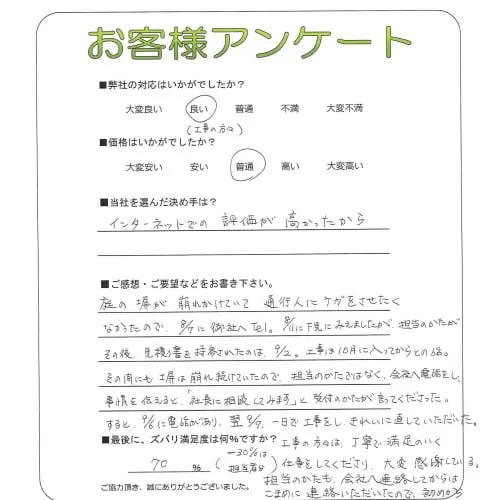 お客様アンケート
■弊社の対応はいかがでしたか？
大変良い 良い 普通 不満 大変不満
(工事の方々)
■価格はいかがでしたか？
大変安い 安い 普通 高い 大変高い
■当社を選んだ決め手は？
インターネットでの 評価が 高かったから
■ご感想・ご要望などをお書き下さい。
庭の 塀が 崩れかけていて 通行人に ケガをさせたく
なかったので、8/7に 御社へTel。8/11に下見にみえましたが、担当のかたが
その後、見積り書を持参されたのは、9/2。工事は10月に入ってからとの話。
その間にも 塀は崩れ続けていたので、担当のかたではなく、会社へ電話をし、
事情を伝えると、「社長に相談してみます」と 受付のかたが言ってくださった。
すると、9/6に電話があり、翌9/7、一日で工事をし、きれいに直していただいた。
■最後に、ズバリ満足度は何%ですか？ 工事の方々は、丁寧で満足のいく
70 % (-30%は担当者分) 仕事をしてくださり、大変 感謝している。
担当のかたも、会社へ連絡してからは
ご協力頂き、誠にありがとうございました。 こまめに 連絡いただいたので、初めから